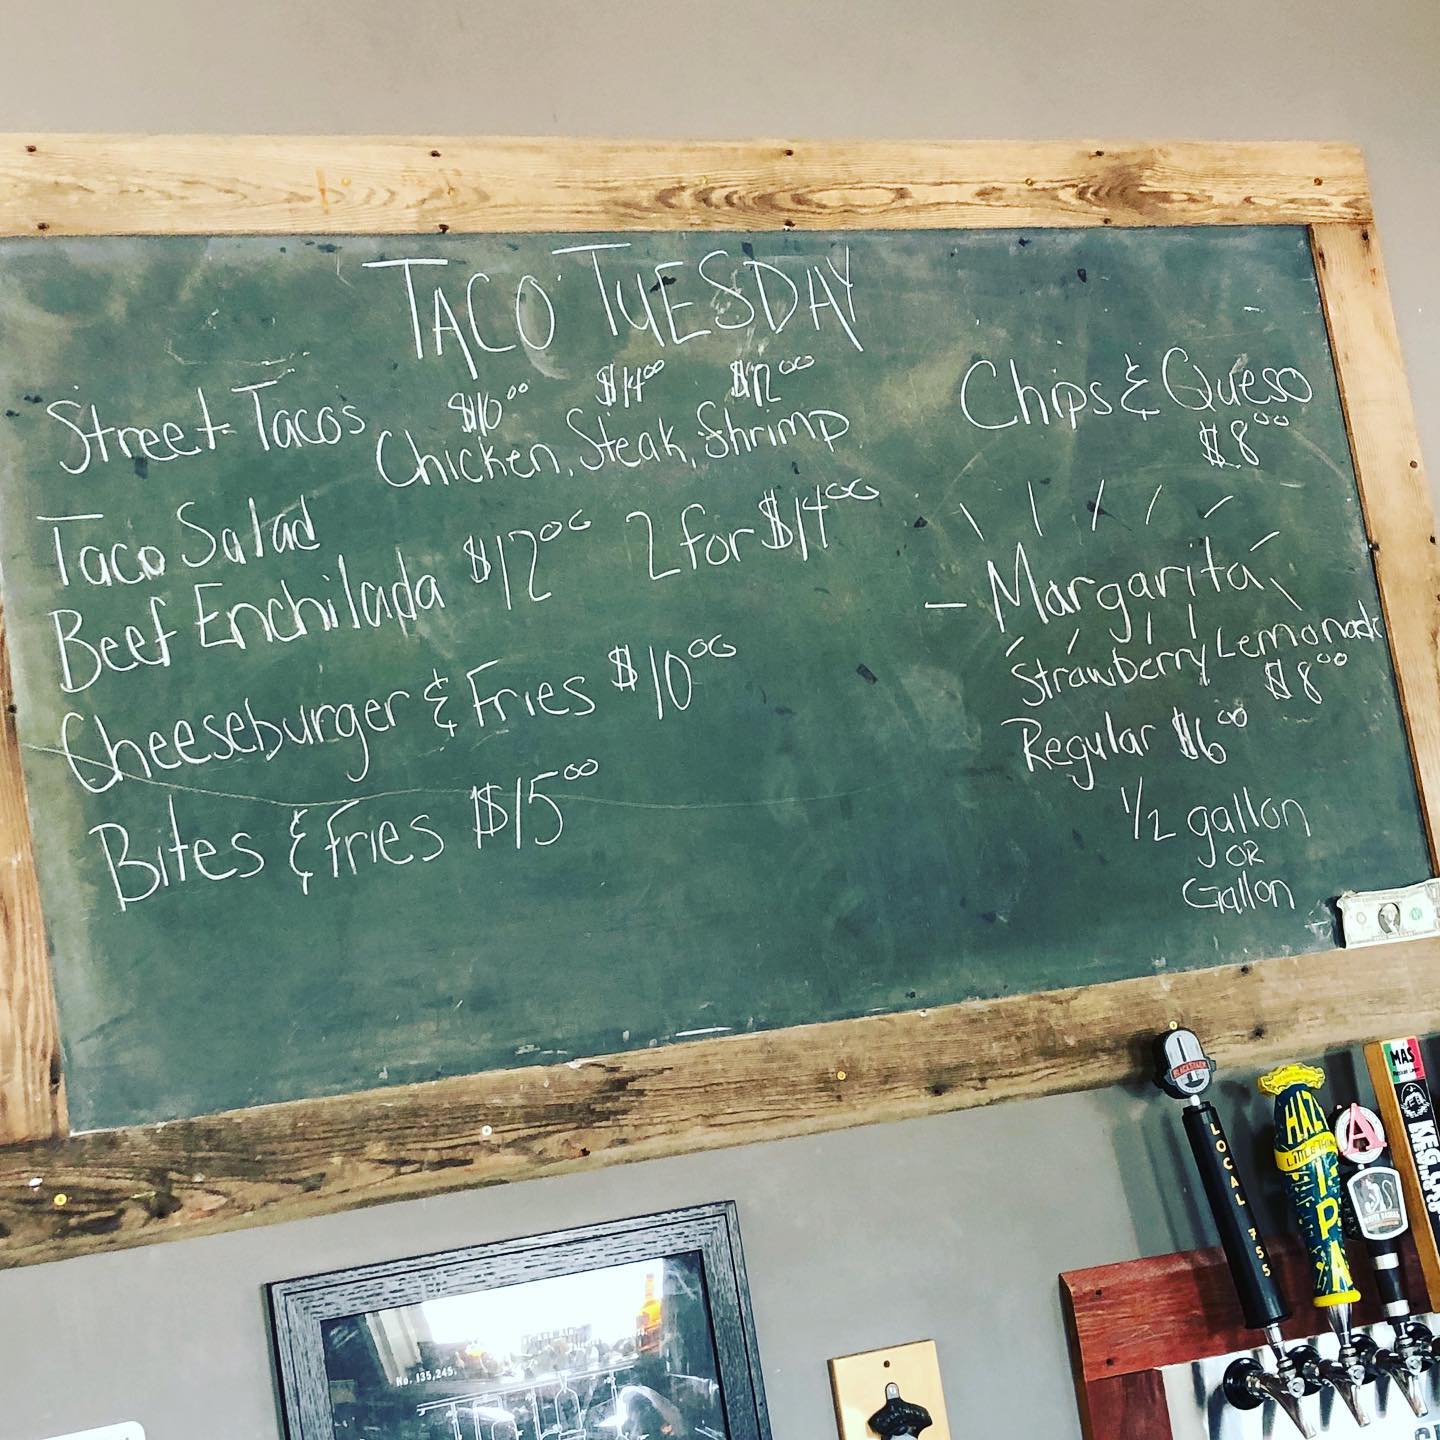 TACO TUESDAY
$10⁰⁰ $14⁰⁰ $12⁰⁰
Street Tacos Chicken, Steak, Shrimp
Taco Salad
Beef Enchilada $12⁰⁰ 2 for $14⁰⁰
Cheeseburger & Fries $10⁰⁰
Bites & Fries $15⁰⁰
Chips & Queso
$8⁰⁰
Margarita
Strawberry Lemonade
$8⁰⁰
Regular $6⁰⁰
1/2 gallon
OR
Gallon
LOCAL 755
HAZY
LITTLE THING
IPA
A
MAS
No. 135,245.